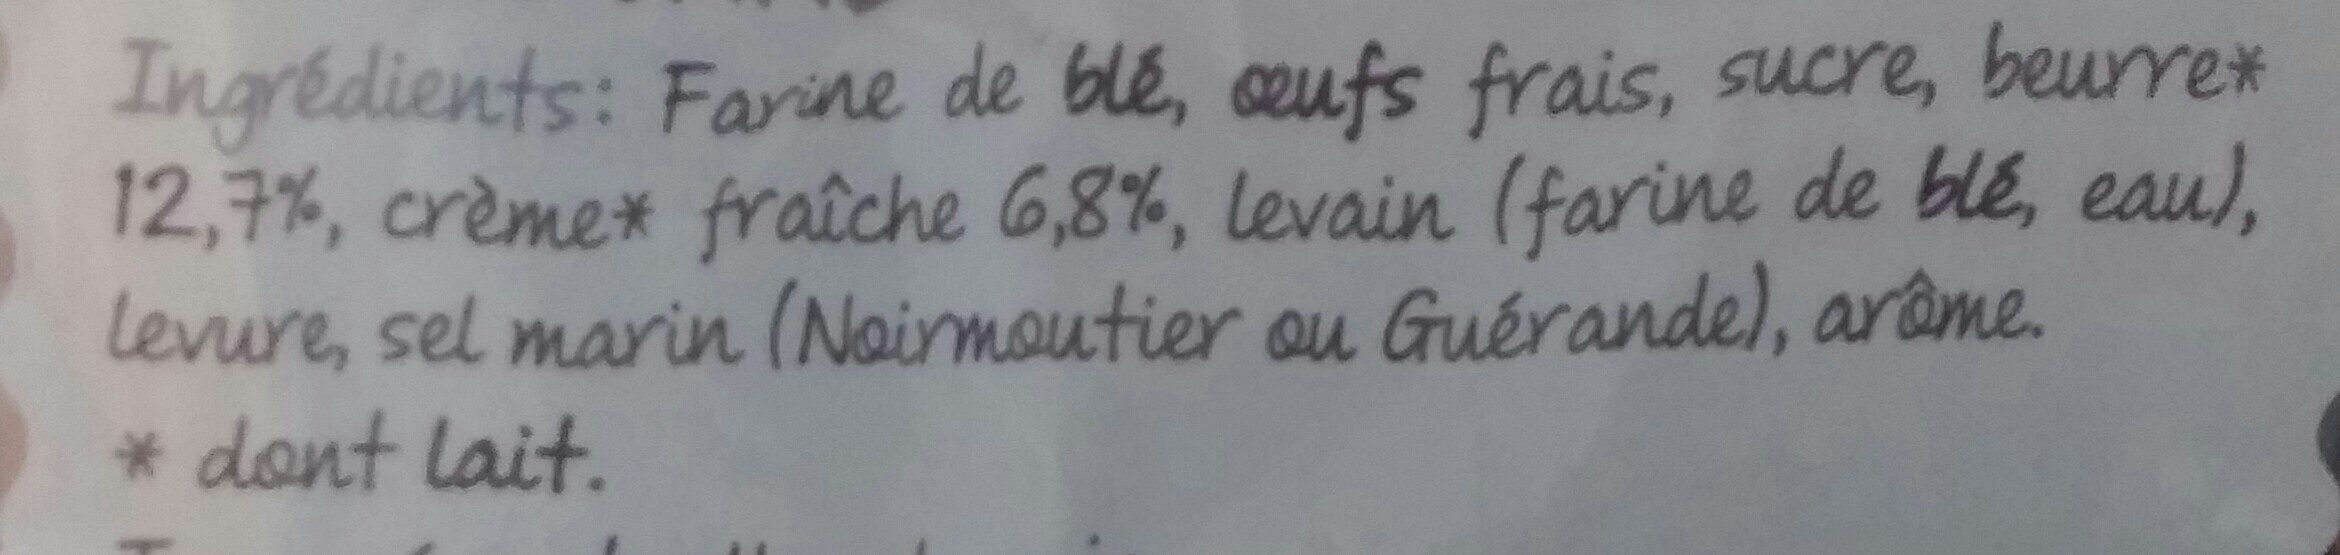 Ingrédients: Farine de blé, œufs frais, sucre, beurre*
12,7%, crème* fraîche 6,8%, levain (farine de blé, eau),
levure, sel marin (Noirmoutier ou Guérande), arôme.
* dont lait.